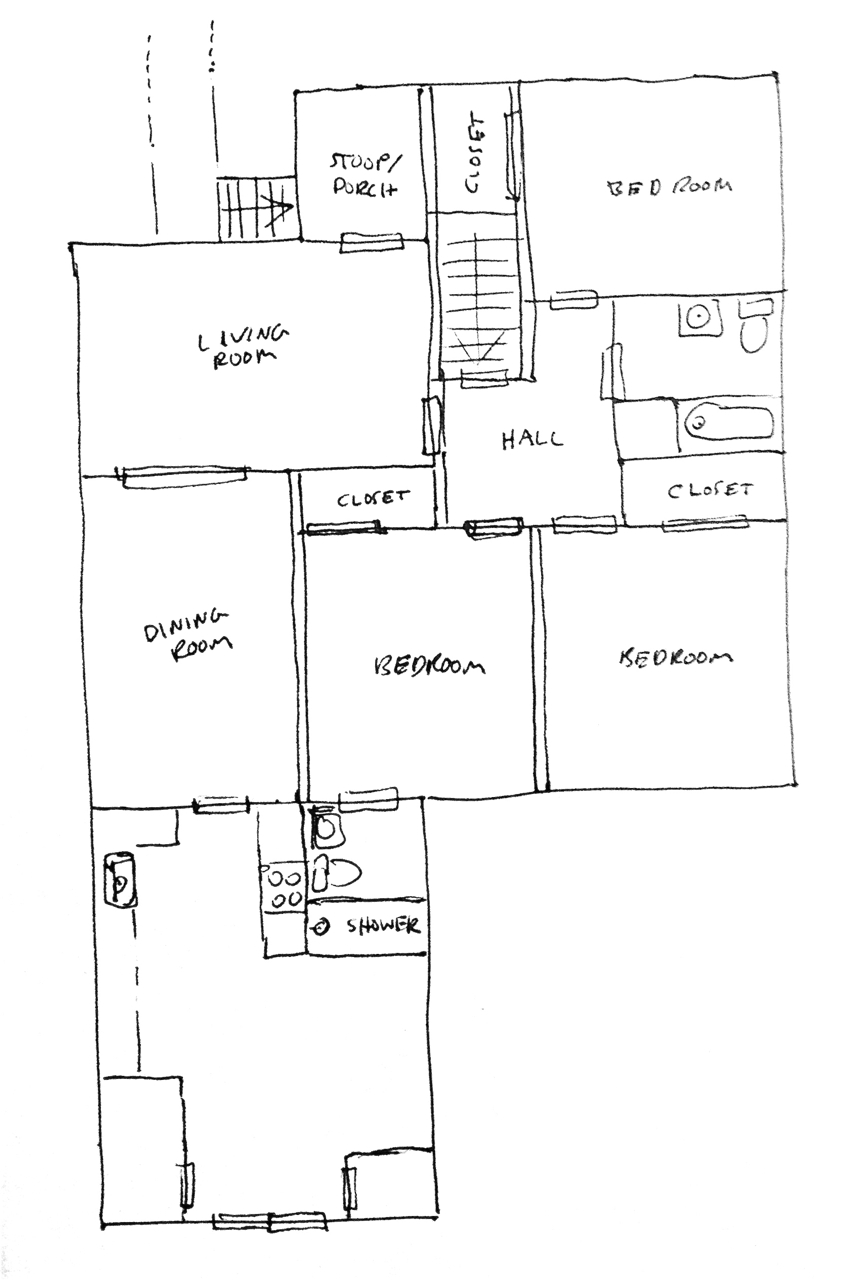 STOOP/
PORCH
CLOSET
BEDROOM
LIVING
ROOM
HALL
CLOSET
CLOSET
DINING
ROOM
BEDROOM
BEDROOM
SHOWER